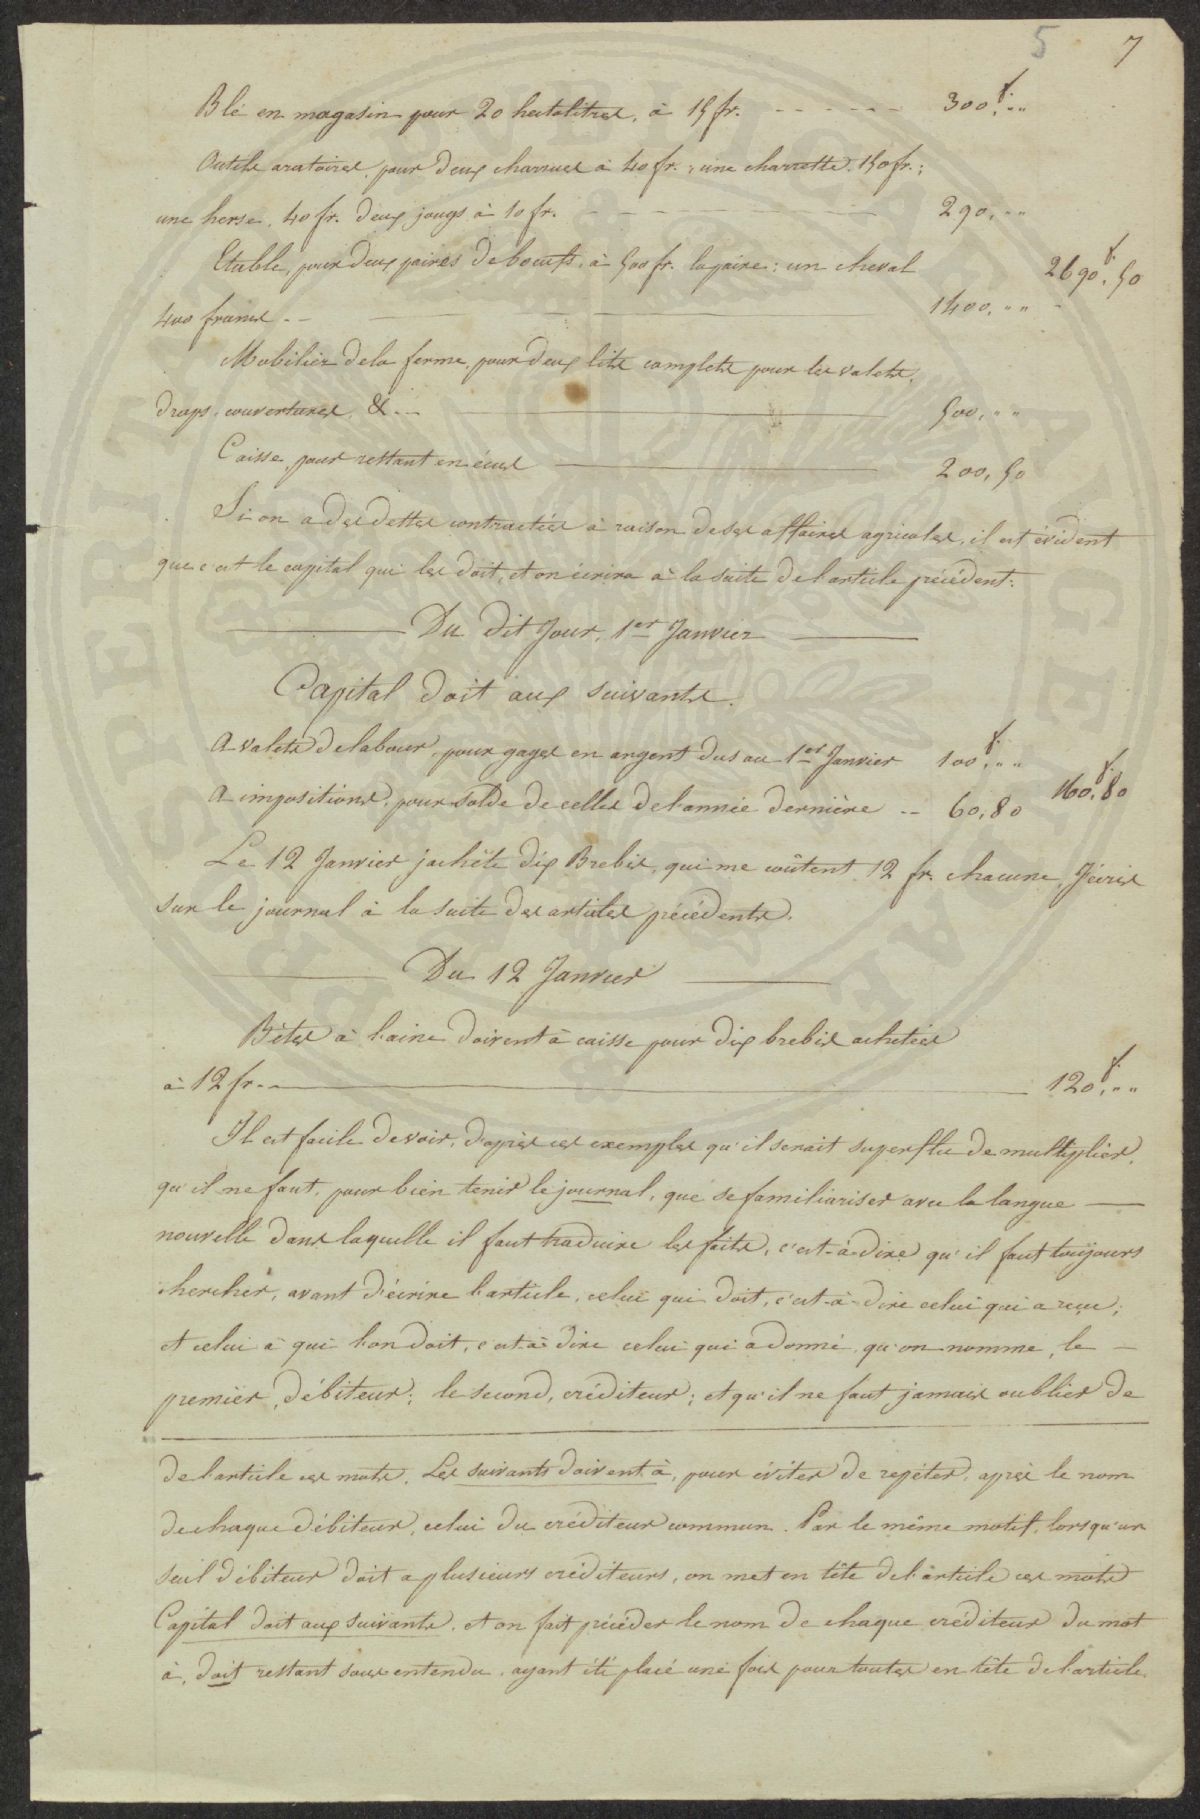 5 7
Blé en magasin pour 20 hectolitres, à 15 fr. - - - - - - 300f,,,
Outils aratoires, pour deux charrues à 40 fr.; une charrette, 150 fr.;
une herse, 40 fr. deux jougs à 10 fr. - - - 290,,,
Etable, pour deux paires de bœufs, à 500 fr. la paire; un cheval 2690f,50
400 francs - - 1400,,, -
Mobilier de la ferme, pour deux lits complets pour les valets,
draps, couvertures, &... 500,,,
Caisse, pour restant en écus 200,50
Si on a des dettes contractées à raison de ses affaires agricoles, il est évident
que c'est le capital qui les doit, et on écrira à la suite de l'article précédent:
Du dit Jour, 1er Janvier
Capital doit aux suivants.
A valets de labour, pour gages en argent dus au 1er Janvier 100f,,,
A impositions, pour solde de celles de l'année dernière -- 60,80 160f,80
Le 12 Janvier j'achète dix Brebis, qui me coûtent 12 fr. chacune, J'écris
sur le journal à la suite des articles précédents.
Du 12 Janvier
Bêtes à laine doivent à caisse pour dix brebis achetées
à 12 fr. 120f,,,
Il est facile de voir, d'après ces exemples qu'il serait superflu de multiplier,
qu'il ne faut, pour bien tenir le journal, que se familiariser avec la langue
nouvelle dans laquelle il faut traduire les faits, c'est-à-dire qu'il faut toujours
chercher, avant d'écrire l'article, celui qui doit, c'est-à-dire celui qui a reçu;
et celui à qui l'on doit, c'est à dire celui qui a donné, qu'on nomme, le -
premier, débiteur; le second, créditeur; et qu'il ne faut jamais oublier de
de l'article ces mots, Les suivants doivent à, pour éviter de repéter, après le nom
de chaque débiteur, celui du créditeur commun. Par le même motif, lorsqu'un
seul débiteur doit a plusieurs créditeurs, on met en tête de l'article ces mots
Capital doit aux suivants, et on fait précéder le nom de chaque créditeur du mot
à, doit restant sous entendu, ayant été placé une fois pour toutes en tête de l'article.